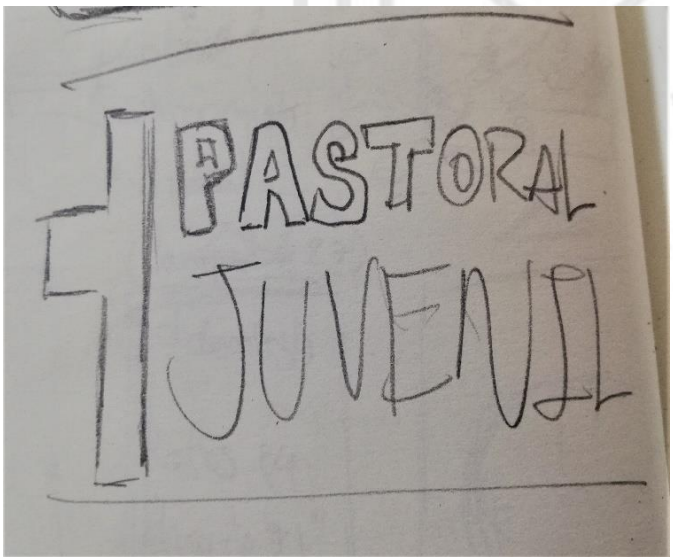 PASTORAL
JUVENIL